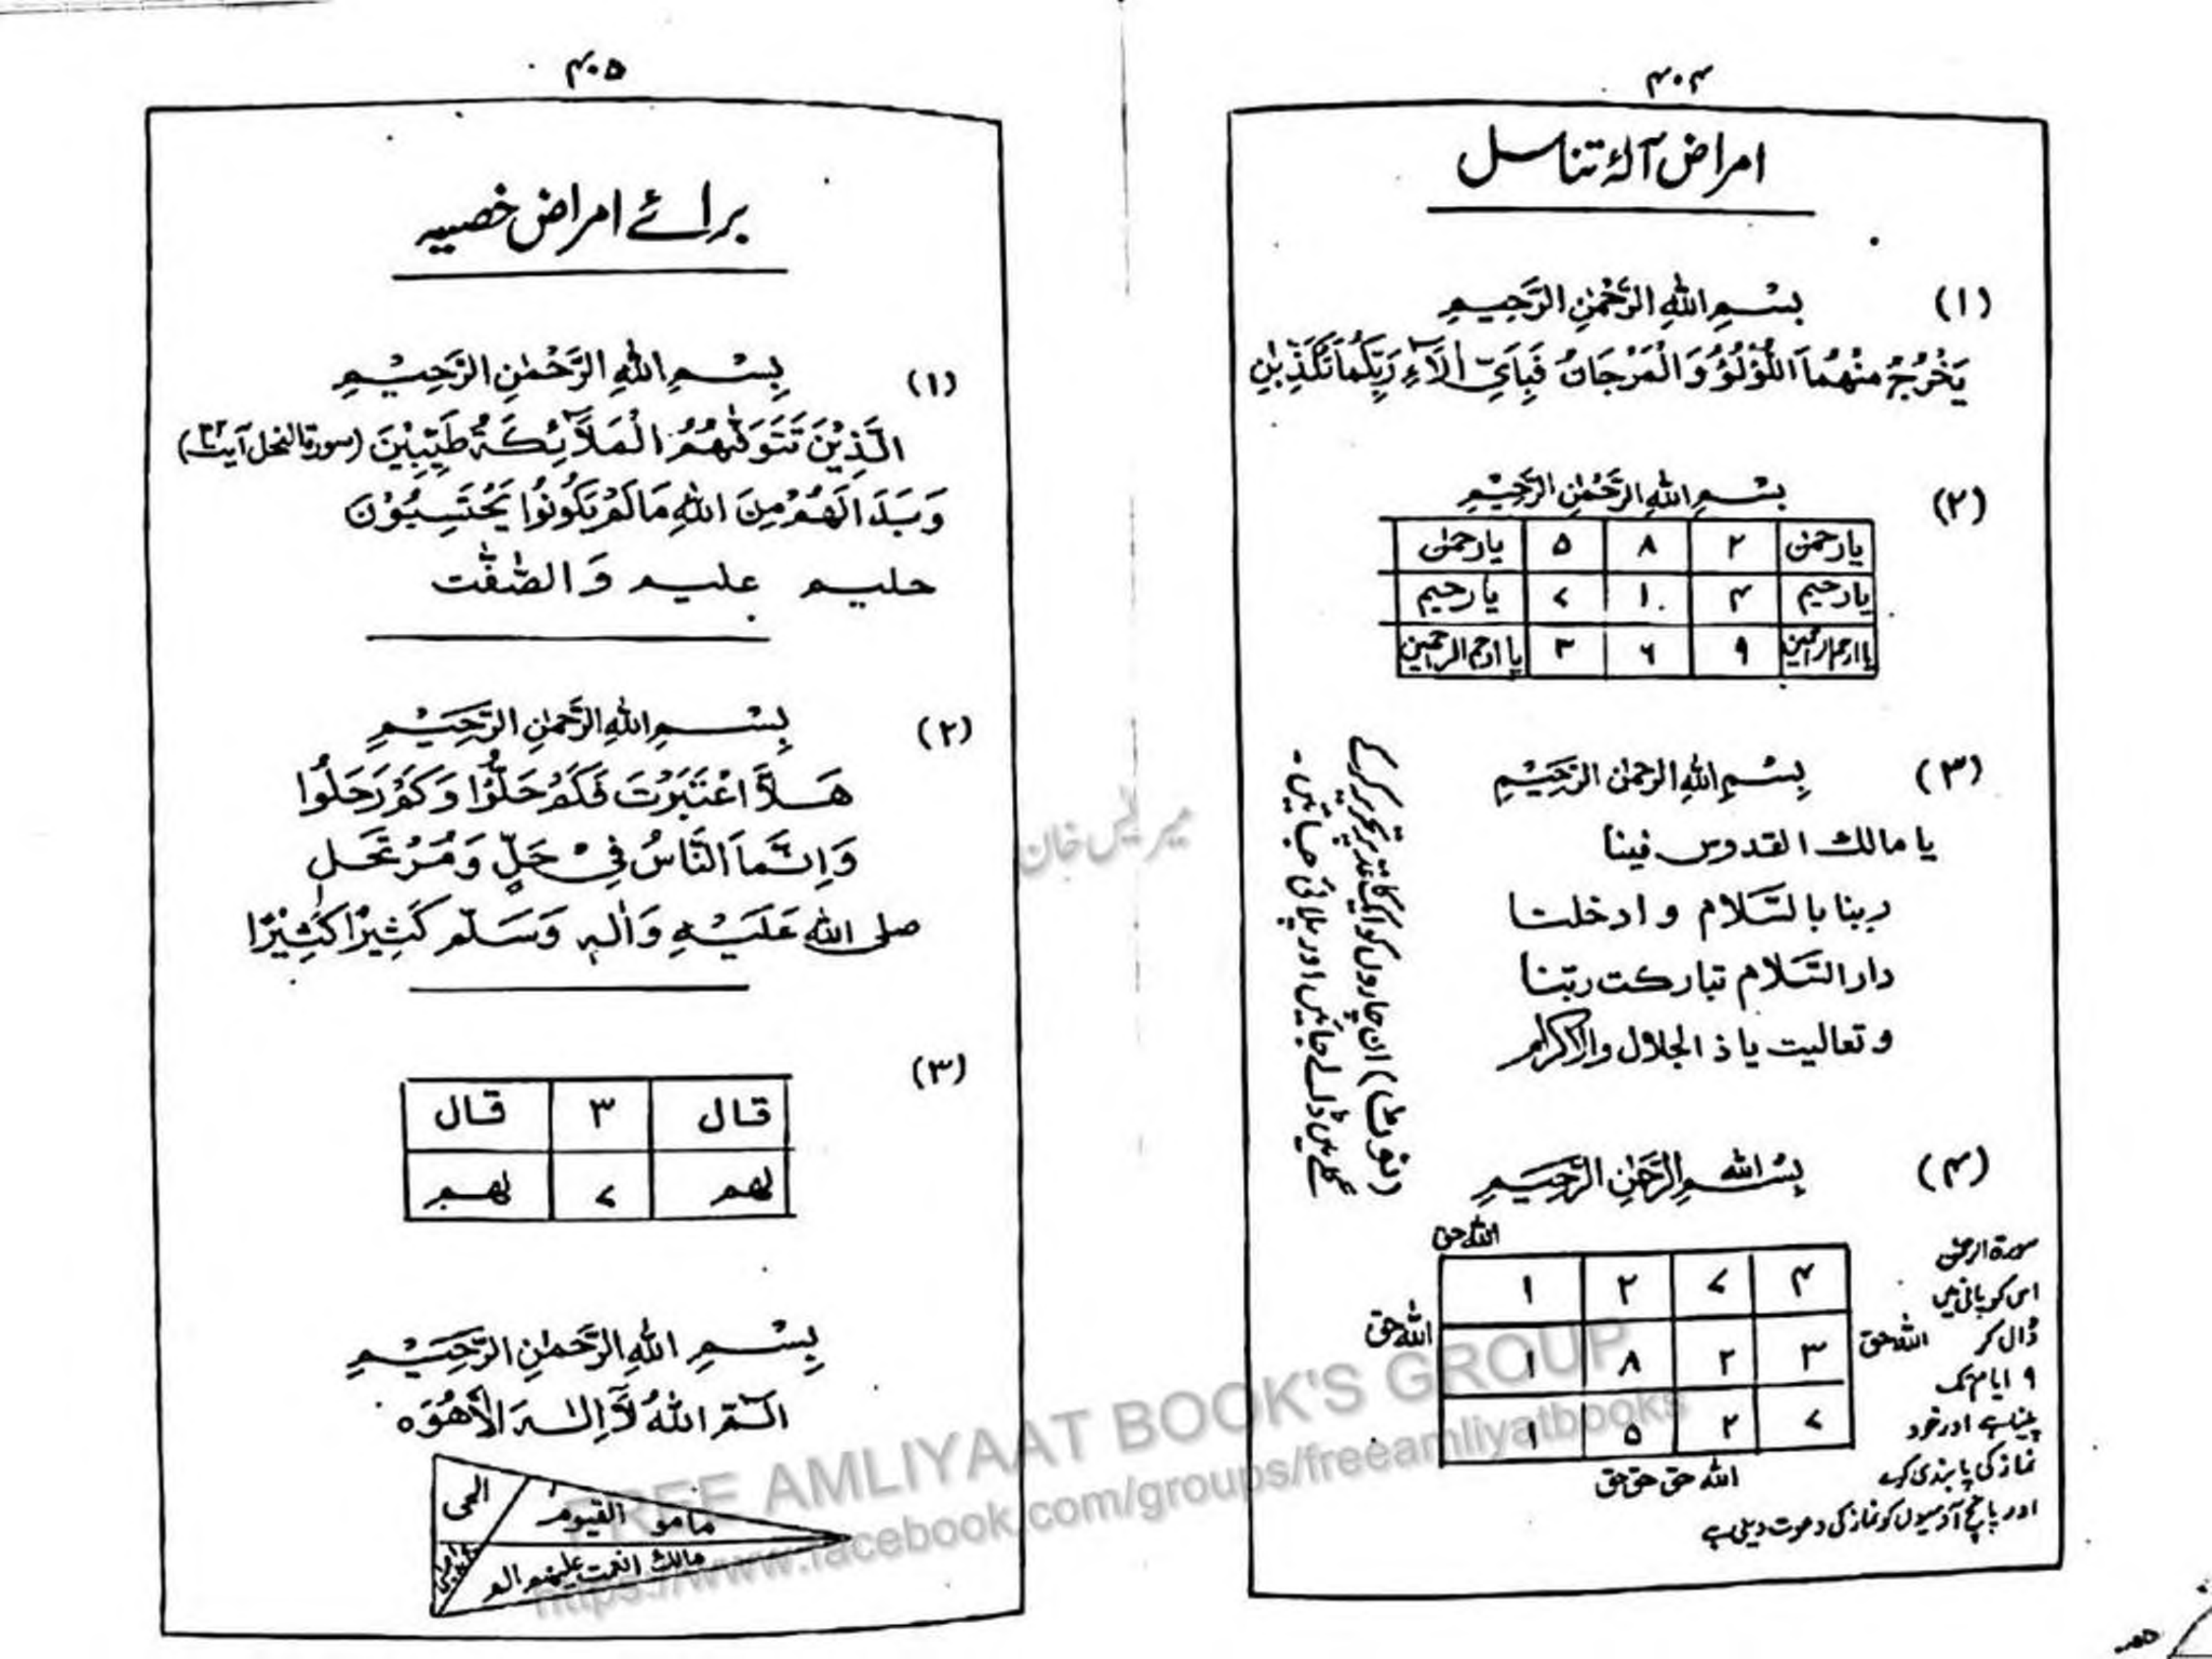 ۴۰۴
امراض آلۂ تناسل
(۱) بِسْمِ اللّٰہِ الرَّحْمٰنِ الرَّحِیْمِ
یَخْرُجُ مِنْھُمَا اللُّؤْلُؤُ وَالْمَرْجَانُ فَبِاَیِّ اٰلَآءِ رَبِّکُمَا تُکَذِّبٰنِ
(۲) بِسْمِ اللّٰہِ الرَّحْمٰنِ الرَّحِیْمِ
یا رحمٰن ۲ ۸ ۵ یا رحمٰن
یا رحیم ۴ ۱۰ ۷ یا رحیم
یا ارحم الراحمین ۹ ۶ ۳ یا ارحم الراحمین
(۳) بِسْمِ اللّٰہِ الرحمٰن الرَّحِیْمِ
یا مالک القدوس فینا
ربنا بالسَّلام و ادخلنا
دار السَّلام تبارکت ربّنا
و تعالیت یا ذ الجلال والاکرام
(نوٹ) ان چاروں کو ایک کاغذ پر تحریر کر کے
گلے میں ڈالے جائیں اور پلائی جائیں۔
(۴) بِسْمِ اللّٰہِ الرَّحْمٰنِ الرَّحِیْمِ
اللّٰہ حق
۴ ۷ ۲ ۱
۳ ۲ ۸ ۱
۷ ۲ ۵ ۱
اللّٰہ حق
اللّٰہ حق
اللّٰہ حق حق حق
سورۃ الرحمٰن
اس کو پانی میں
ڈال کر
۹ ایام تک
پینا ہے اور خود
نماز کی پابندی کرے
اور پانچ آدمیوں کو نماز کی دعوت دینی ہے
۴۰۵
برائے امراض خصیہ
(۱) بِسْمِ اللّٰہِ الرَّحْمٰنِ الرَّحِیْمِ
الَّذِیْنَ تَتَوَفّٰھُمُ الْمَلَآئِکَۃُ طَیِّبِیْنَ (سورۃ النحل آیت ۳۲)
وَبَدَا لَھُمْ مِنَ اللّٰہِ مَا لَمْ یَکُوْنُوْا یَحْتَسِبُوْنَ
حلیم علیم وَالصّٰفّٰت
(۲) بِسْمِ اللّٰہِ الرَّحْمٰنِ الرَّحِیْمِ
ھَلَّا اعْتَبَرْتَ فَکَمْ حَلُّوْا وَکَمْ رَحَلُوْا
وَاِنَّمَا النَّاسُ فِیْ حَلٍّ وَمُرْتَحَلٍ
صلی اللّٰہ عَلَیْہِ وَاٰلِہٖ وَسَلَّمَ کَثِیْرًا کَثِیْرًا
(۳)
قال ۳ قال
لھم ۷ لھم
بِسْمِ اللّٰہِ الرَّحْمٰنِ الرَّحِیْمِ
الٓمّٓ اللّٰہُ لَآ اِلٰہَ اِلَّا ھُوَ ہ
الحی
مامو القیوم
مالک انعمت علیھم الم
میر نفیس خان
FREE AMLIYAAT BOOK'S GROUP
https://www.facebook.com/groups/freeamliyatbooks